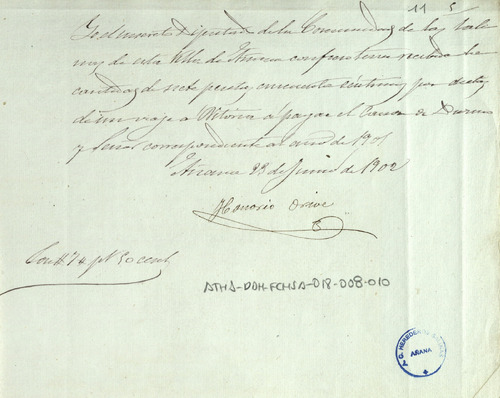 11 5
Diputado de la Comunidad de las Sali
nas de esta Villa de Añana confiero tener recibido la
cantidad de siete pesetas cincuenta céntimos por dietas
de un viaje a Vitoria á pagar el Canon de Duenas
y Leina correspondiente al año de 1901
Añana 23 de Junio de 1902
Honorio Orive
Son # 7 # pts 50 cents
ATHA-DDH-FCHSA-018-008-010
ARANA